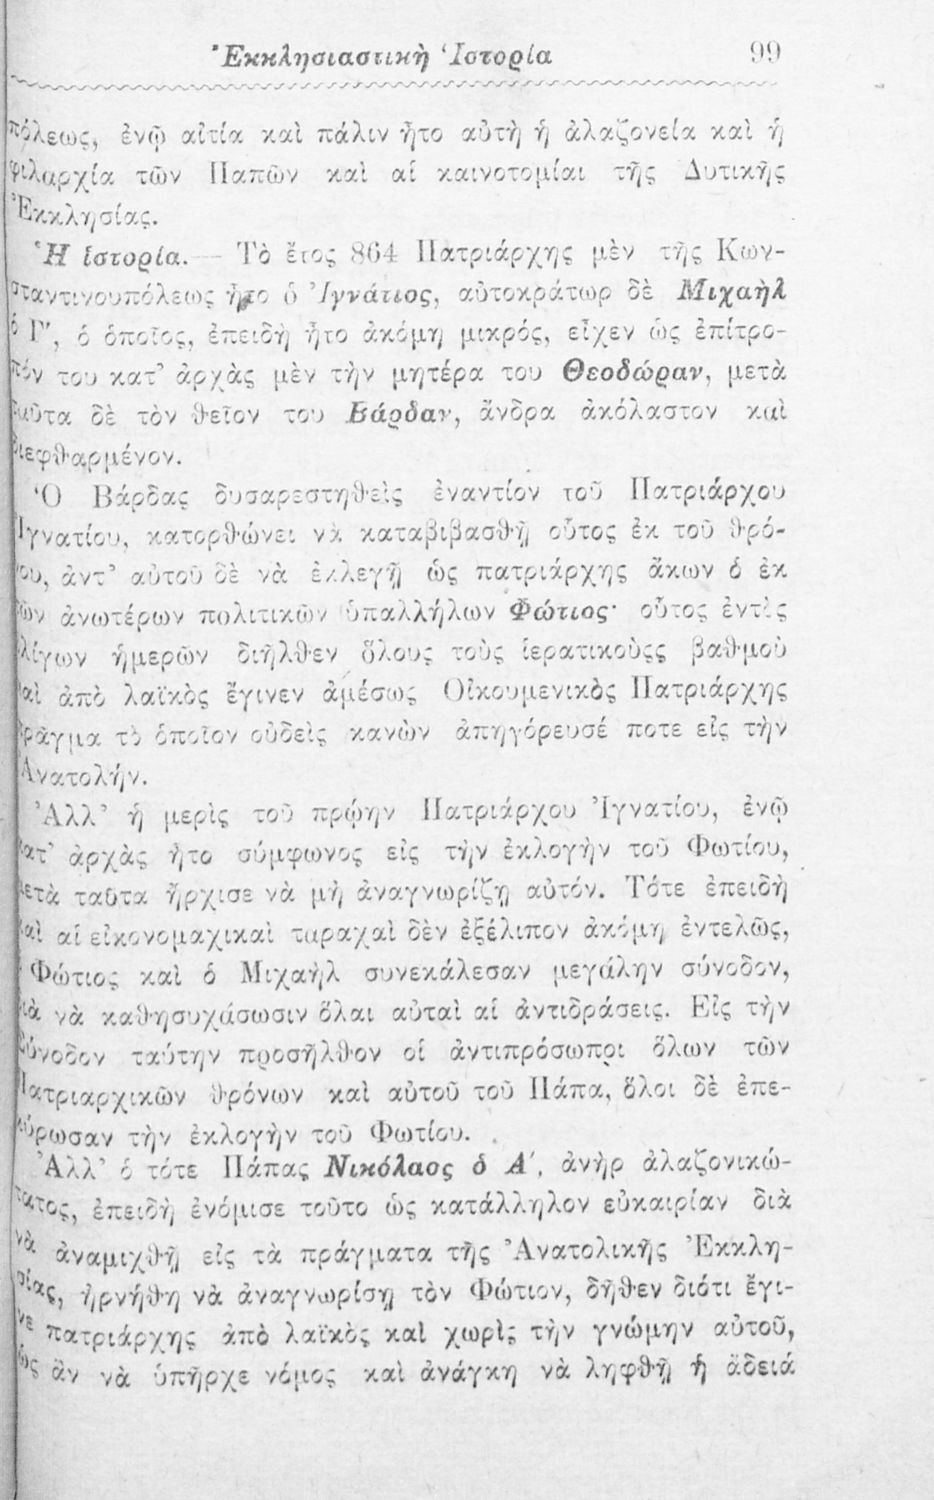 Ἐκκλησιαστικὴ Ἱστορία 99
πόλεως, ἐνῷ αἰτία καὶ πάλιν ἦτο αὐτὴ ἡ ἀλαζονεία καὶ ἡ
φιλαρχία τῶν Παπῶν καὶ αἱ καινοτομίαι τῆς Δυτικῆς
Ἐκκλησίας.
Ἡ ἱστορία. — Τὸ ἔτος 864 Πατριάρχης μὲν τῆς Κων-
σταντινουπόλεως ἦτο ὁ Ἰγνάτιος, αὐτοκράτωρ δὲ Μιχαὴλ
ὁ Γ′, ὁ ὁποῖος, ἐπειδὴ ἦτο ἀκόμη μικρός, εἶχεν ὡς ἐπίτρο-
πόν του κατ’ ἀρχὰς μὲν τὴν μητέρα του Θεοδώραν, μετὰ
ταῦτα δὲ τὸν θεῖον του Βάρδαν, ἄνδρα ἀκόλαστον καὶ
διεφθαρμένον.
Ὁ Βάρδας δυσαρεστηθεὶς ἐναντίον τοῦ Πατριάρχου
Ἰγνατίου, κατορθώνει νὰ καταβιβασθῇ οὗτος ἐκ τοῦ θρό-
νου, ἀντ’ αὐτοῦ δὲ νὰ ἐκλεγῇ ὡς πατριάρχης ἄκων ὁ ἐκ
τῶν ἀνωτέρων πολιτικῶν ὑπαλλήλων Φώτιος· οὗτος ἐντὸς
ὀλίγων ἡμερῶν διῆλθεν ὅλους τοὺς ἱερατικοὺςς βαθμοὺ
καὶ ἀπὸ λαϊκὸς ἔγινεν ἀμέσως Οἰκουμενικὸς Πατριάρχης
πρᾶγμα τὸ ὁποῖον οὐδεὶς κανὼν ἀπηγόρευσέ ποτε εἰς τὴν
Ἀνατολήν.
Ἀλλ’ ἡ μερὶς τοῦ πρῴην Πατριάρχου Ἰγνατίου, ἐνῷ
κατ’ ἀρχὰς ἦτο σύμφωνος εἰς τὴν ἐκλογὴν τοῦ Φωτίου,
μετὰ ταῦτα ἤρχισε νὰ μὴ ἀναγνωρίζῃ αὐτόν. Τότε ἐπειδὴ
καὶ αἱ εἰκονομαχικαὶ ταραχαὶ δὲν ἐξέλιπον ἀκόμη ἐντελῶς,
ὁ Φώτιος καὶ ὁ Μιχαὴλ συνεκάλεσαν μεγάλην σύνοδον,
διὰ νὰ καθησυχάσωσιν ὅλαι αὐταὶ αἱ ἀντιδράσεις. Εἰς τὴν
Σύνοδον ταύτην προσῆλθον οἱ ἀντιπρόσωποι ὅλων τῶν
Πατριαρχικῶν θρόνων καὶ αὐτοῦ τοῦ Πάπα, ὅλοι δὲ ἐπε-
κύρωσαν τὴν ἐκλογὴν τοῦ Φωτίου.
Ἀλλ’ ὁ τότε Πάπας Νικόλαος ὁ Α′, ἀνὴρ ἀλαζονικώ-
τατος, ἐπειδὴ ἐνόμισε τοῦτο ὡς κατάλληλον εὐκαιρίαν διὰ
νὰ ἀναμιχθῇ εἰς τὰ πράγματα τῆς Ἀνατολικῆς Ἐκκλη-
σίας, ἠρνήθη νὰ ἀναγνωρίσῃ τὸν Φώτιον, δῆθεν διότι ἔγι-
νε πατριάρχης ἀπὸ λαϊκὸς καὶ χωρὶς τὴν γνώμην αὐτοῦ,
ὡς ἂν νὰ ὑπῆρχε νόμος καὶ ἀνάγκη νὰ ληφθῇ ἡ ἄδειά